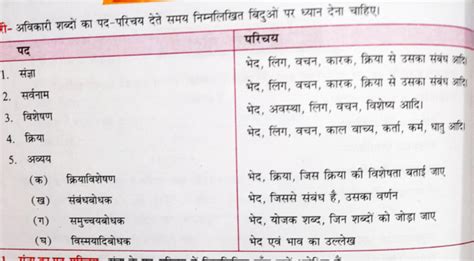 री- अविकारी शब्दों का पद-परिचय देते समय निम्नलिखित बिंदुओं पर ध्यान देना चाहिए।
पद परिचय
1. संज्ञा भेद, लिंग, वचन, कारक, क्रिया से उसका संबंध आदि।
2. सर्वनाम भेद, लिंग, वचन, कारक, क्रिया से उसका संबंध आदि।
3. विशेषण भेद, अवस्था, लिंग, वचन, विशेष्य आदि।
4. क्रिया भेद, लिंग, वचन, काल वाच्य, कर्ता, कर्म, धातु आदि।
5. अव्यय
(क) क्रियाविशेषण भेद, क्रिया, जिस क्रिया की विशेषता बताई जाए
(ख) संबंधबोधक भेद, जिससे संबंध है, उसका वर्णन
(ग) समुच्चयबोधक भेद, योजक शब्द, जिन शब्दों को जोड़ा जाए
(घ) विस्मयादिबोधक भेद एवं भाव का उल्लेख